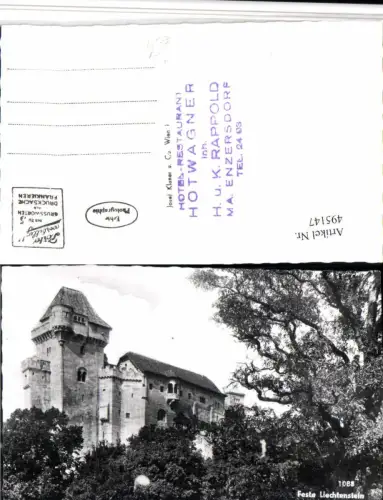 HOTEL-RESTAURANT
HOTWAGNER
Inh.
H. u. K. RAPPOLD
MA. ENZERSDORF
TEL. 24 03
Josef Kluger & Co. Wien I
Echte
Photographie
BRUSSWORTEN
ALS
DRUCKSACHE
FRANKIEREN
Artikel Nr.
495147
1088
Feste Liechtenstein